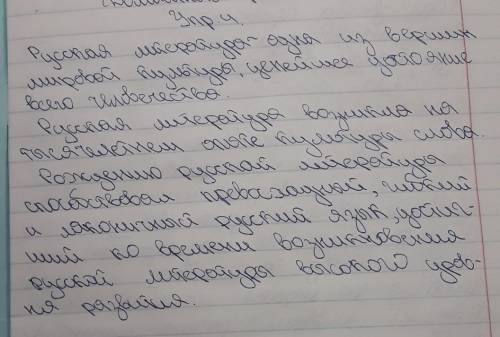 Упр. 4
Русская литература - одна из вершин
мировой культуры, ценнейшее достояние
всего человечества.
Русская литература возникла на
тысячелетнем опыте культуры слова.
Рождению русской литературы
способствовал превосходный, гибкий
и лаконичный русский язык, достиг-
ший ко времени возникновения
русской литературы высокого уров-
ня развития.